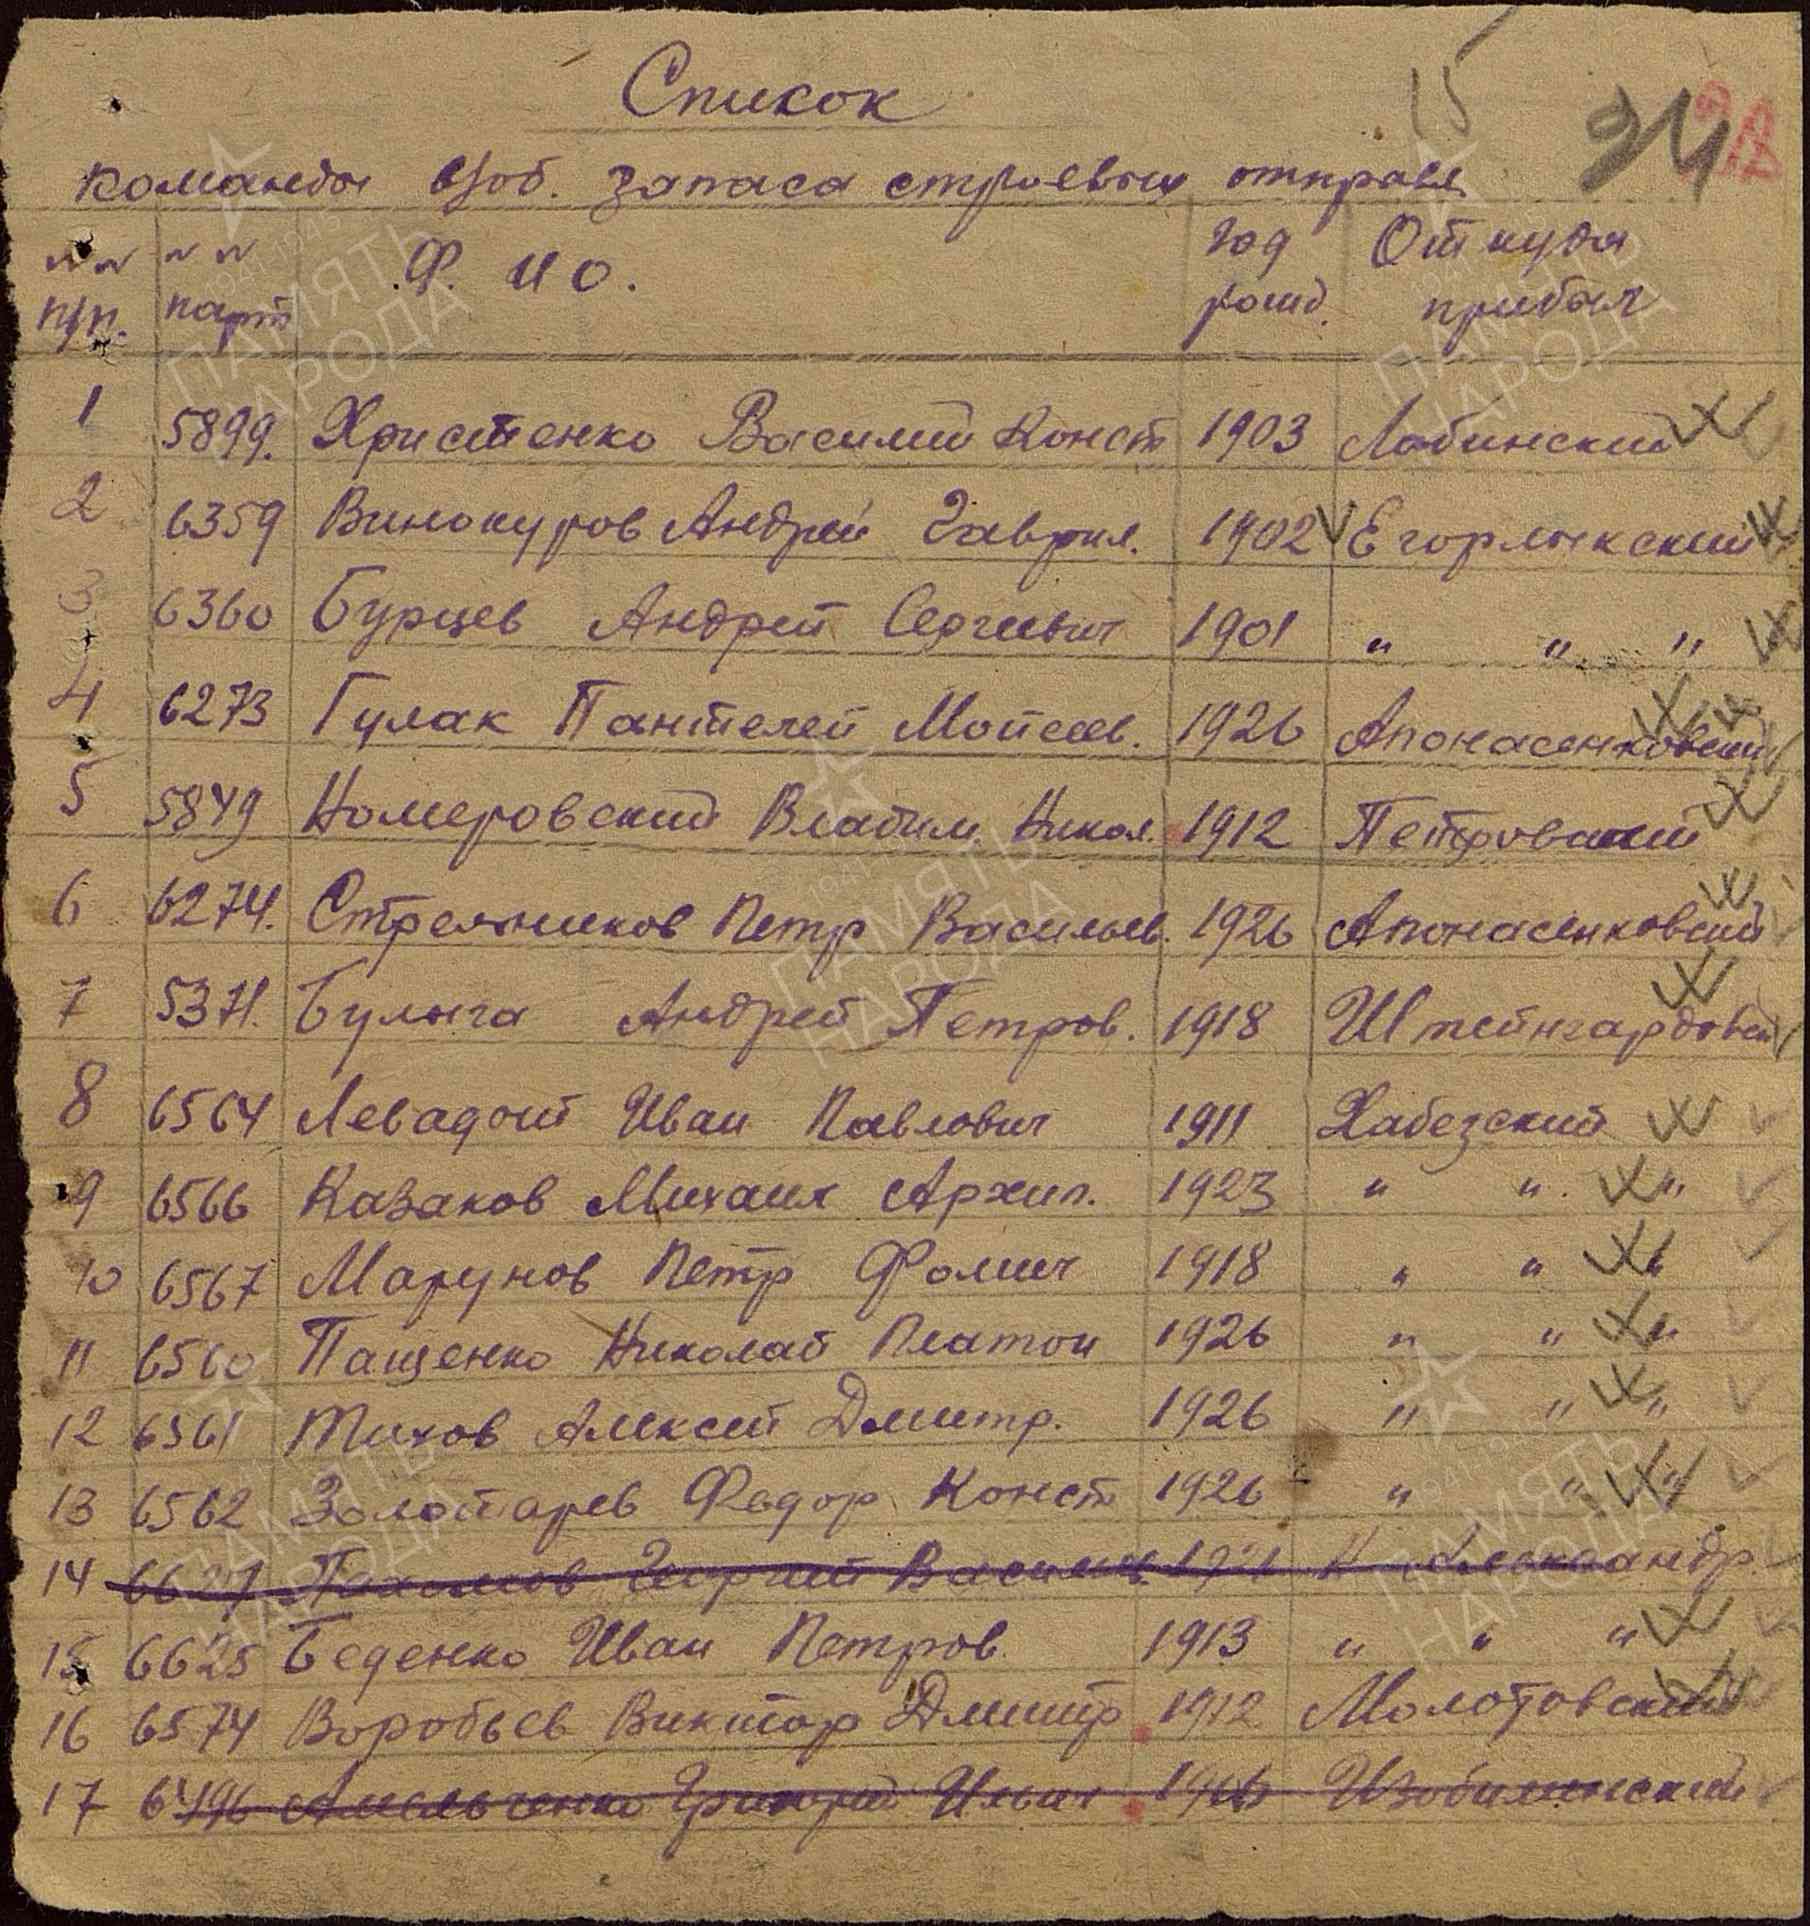 15
34
Список
команды в/об. запаса строевых отправл
№№ п/п. №№ парт Ф. И О. год рожд. Откуда прибыл
1 5899. Христенко Василий Конст 1903 Лабинский
2 6359 Винокуров Андрей Гаврил. 1902 Егорлыкский
3 6360 Бурцев Андрей Сергеевич 1901 " " "
4 6273 Гулак Пантелей Моисеев. 1926 Апонасенковский
5 5849 Номеровский Владим. Никол. 1912 Петровский
6 6274. Стрельников Петр Васильев. 1926 Апонасенковский
7 5371. Булыга Андрей Петров. 1918 Штейнгардовский
8 6564 Левадоит Иван Павлович 1911 Хабезский
9 6566 Казаков Михаил Архип. 1923 " " "
10 6567 Марунов Петр Фомич 1918 " " "
11 6560 Пащенко Николай Платон 1926 " " "
12 6561 Тихов Алексей Дмитр. 1926 " " "
13 6562 Золотарев Федор Конст 1926 " " "
14 Георгий Васильев. Н Александр.
15 6625 Беденко Иван Петров. 1913 " " "
16 6574 Воробьев Виктор Дмитр 1912 Молотовский
17 6496 Амельченко Григорий Ильич Изобилинский
1941-1945
ПАМЯТЬ
НАРОДА